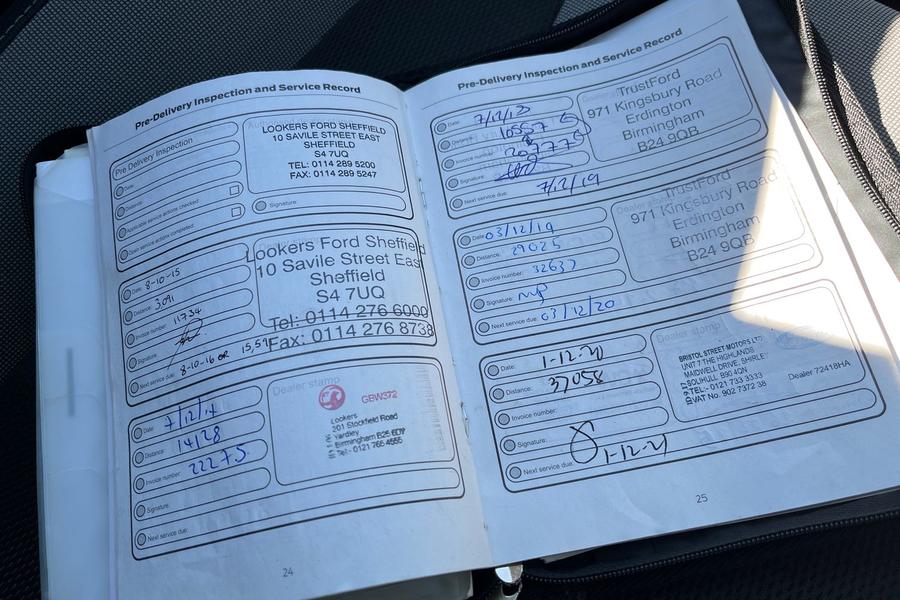 Pre-Delivery Inspection and Service Record
Pre Delivery Inspection
Date:
Distance:
Applicable service actions checked
Open service actions completed
LOOKERS FORD SHEFFIELD
10 SAVILE STREET EAST
SHEFFIELD
S4 7UQ
TEL: 0114 289 5200
FAX: 0114 289 5247
Signature:
Date: 8-10-15
Distance: 3091
Invoice number: 11734
Signature:
Next service due: 8-10-16 OR 15,591
Lookers Ford Sheffield
10 Savile Street East
Sheffield
S4 7UQ
Tel: 0114 276 6000
Fax: 0114 276 8738
Date: 7/12/
Distance: 14128
Invoice number: 22275
Signature:
Next service due:
Dealer stamp
GBW372
Lookers
201 Stockfield Road
Yardley
Birmingham B25
Tel:- 0121 765 4555
24
Pre-Delivery Inspection and Service Record
Date: 7/12/
Distance:
Invoice number:
Signature:
Next service due: 7/12/19
TrustFord
971 Kingsbury Road
Erdington
Birmingham
B24 9QB
Date: 03/12/19
Distance: 29025
Invoice number: 32637
Signature:
Next service due: 03/12/20
TrustFord
971 Kingsbury Road
Erdington
Birmingham
B24 9QB
Date: 1-12-
Distance: 37058
Invoice number:
Signature:
Next service due: 1-12-21
Dealer stamp
BRISTOL STREET MOTORS LTD
UNIT 7 THE HIGHLANDS
MAIDWELL DRIVE, SHIRLEY
SOLIHULL B90 4QN
Tel:- 0121 733 3333
VAT No. 902 7372 38
Dealer 72418HA
25